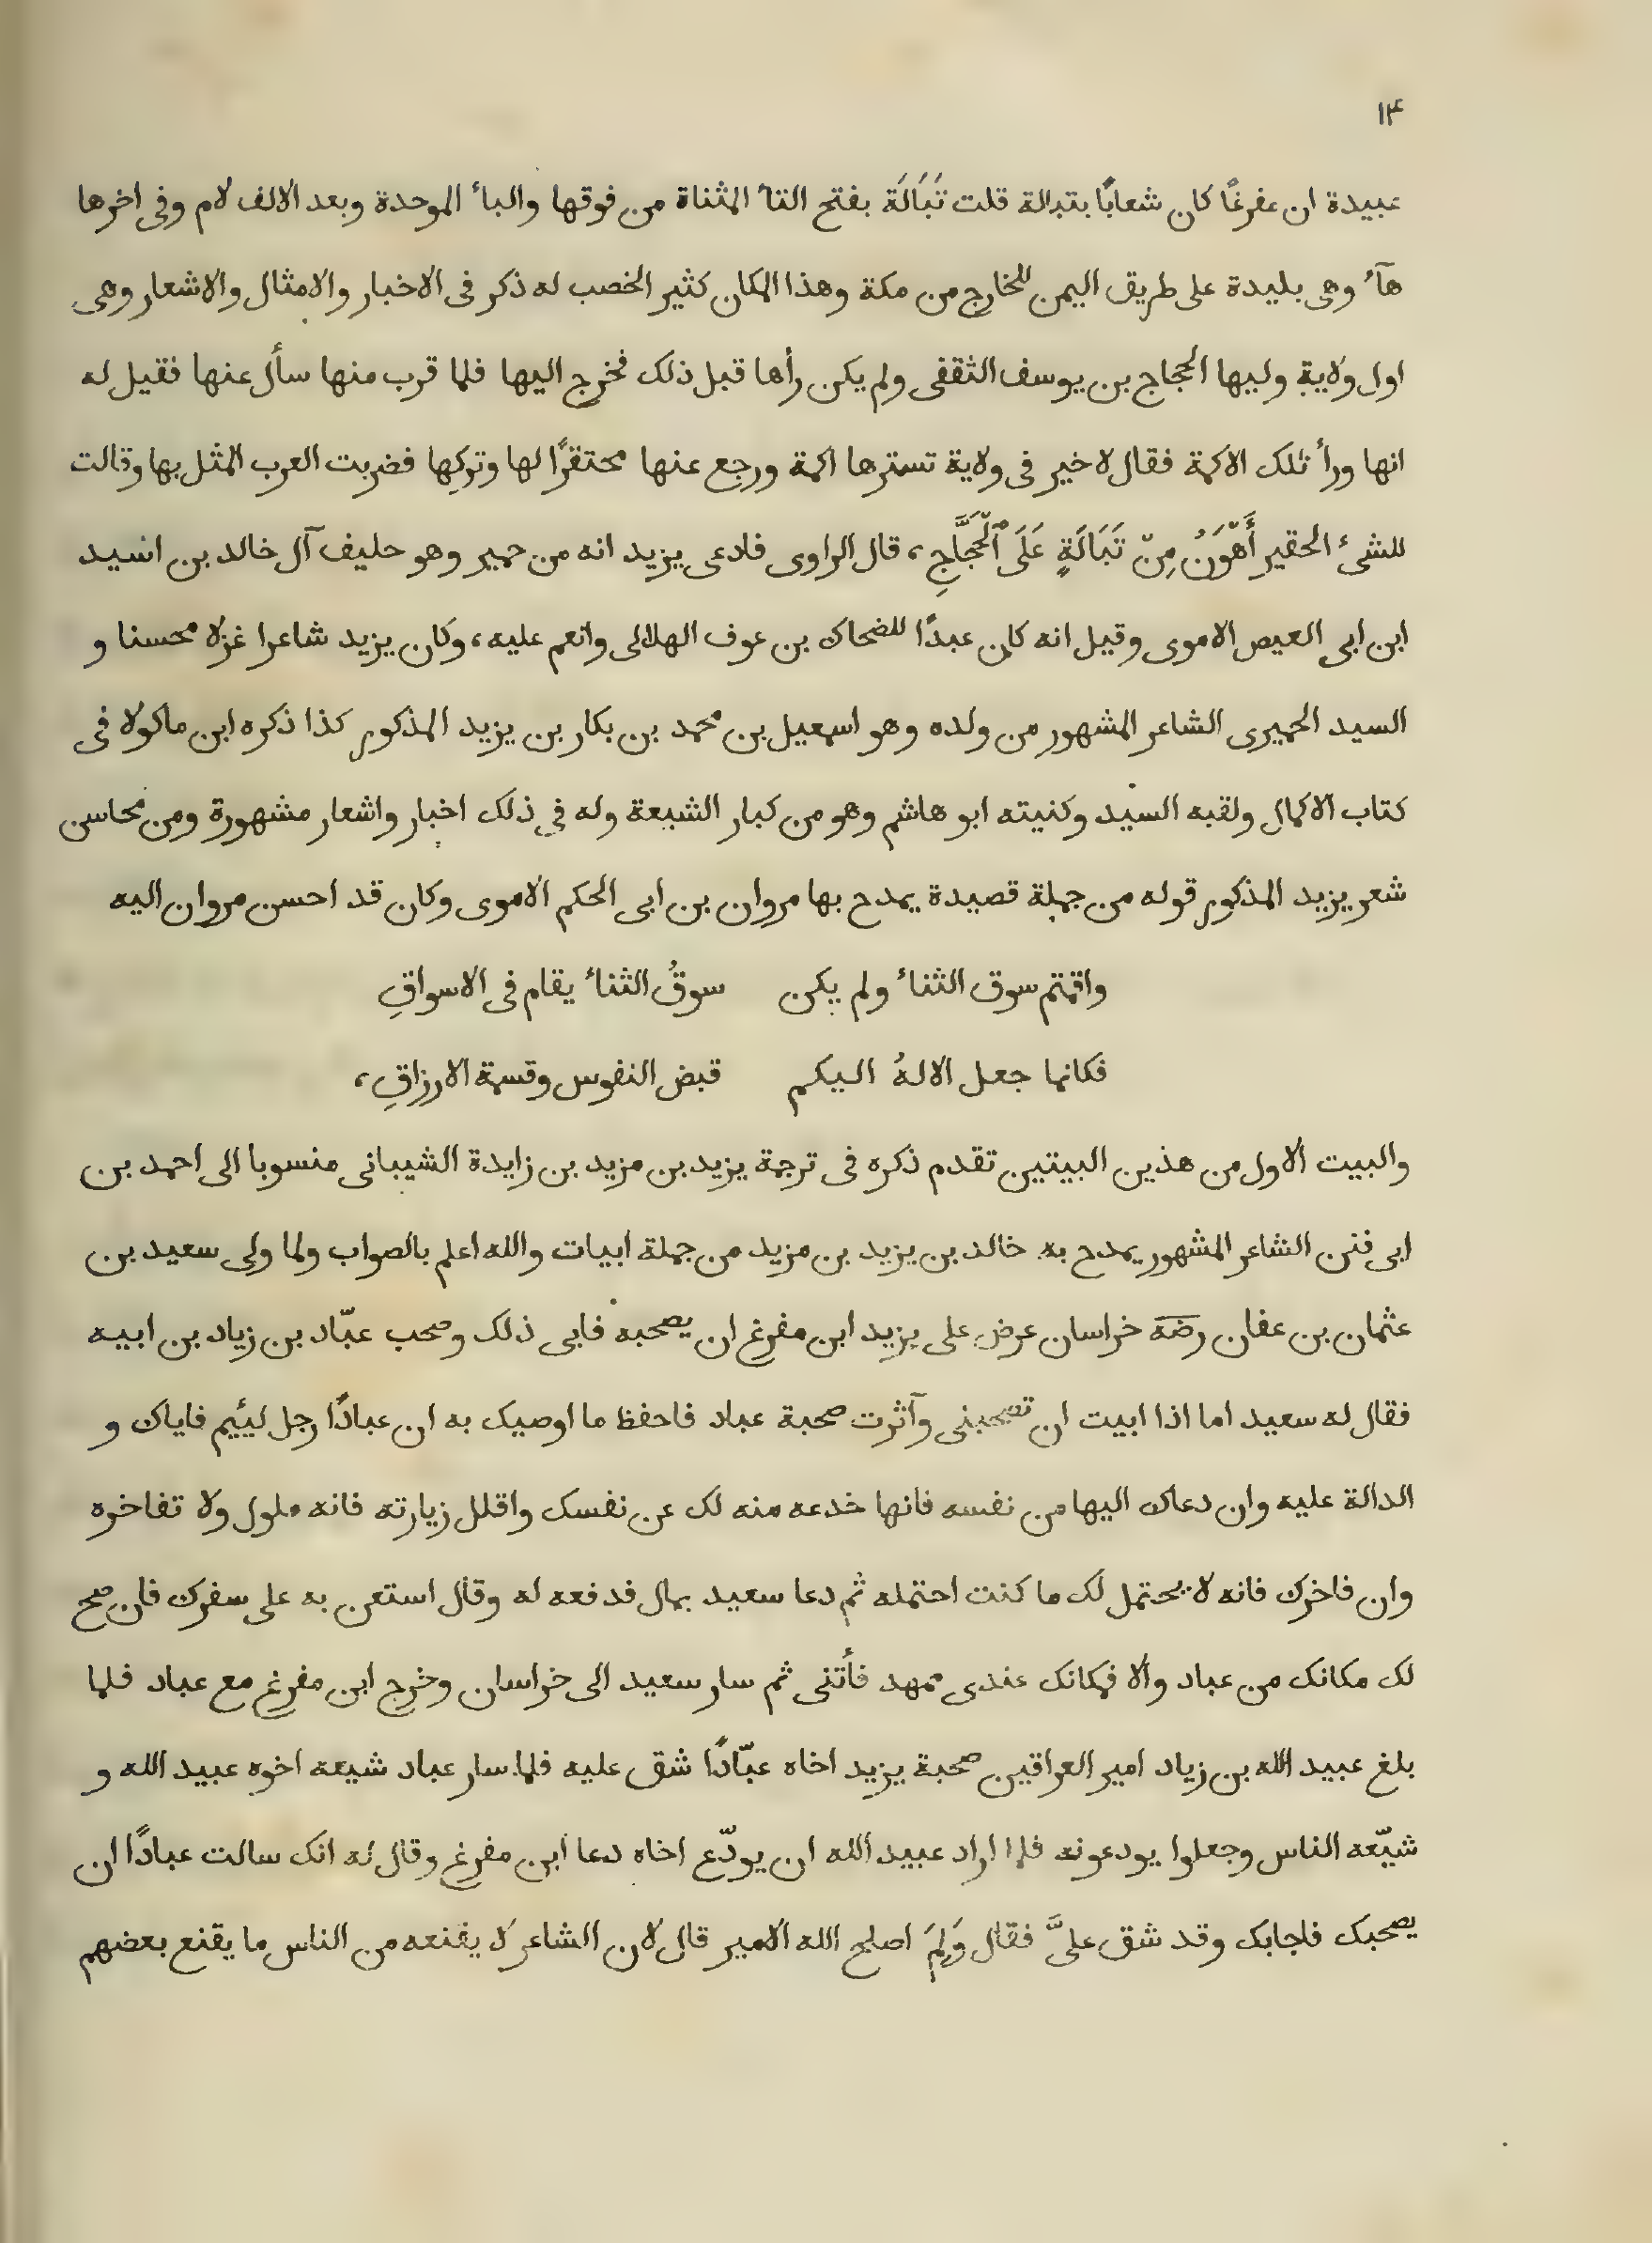 ١٣
عبيدة ان مفرغًا كان شعابًا بتبالة قلت تَبَالَة بفتح التاء المثناة من فوقها والباء الموحدة وبعد الالف لام وفى اخرها
هآء وهى بليدة على طريق اليمن للخارج من مكة وهذا المكان كثير الخصب له ذكر فى الاخبار والامثال والاشعار وهى
اول ولاية وليها الحجاج بن يوسف الثقفى ولم يكن رأها قبل ذلك فخرج اليها فلما قرب منها سأل عنها فقيل له
انها وراء تلك الاكمة فقال لا خير فى ولاية تسترها اكمة ورجع عنها محتقرًا لها وتركها فضربت العرب المثل بها وقالت
للشىء الحقير أَهْوَنُ مِنْ تَبَالَةٍ عَلَى ٱلْحَجَّاجِ، قال الراوى فادعى يزيد انه من حمير وهو حليف آل خالد بن اسيد
ابن ابى العيص الاموى وقيل انه كان عبدًا للضحاك بن عوف الهلالى وانعم عليه، وكان يزيد شاعرا غزلا محسنا و
السيد الحميرى الشاعر المشهور من ولده وهو اسمعيل بن محمد بن بكار بن يزيد المذكور كذا ذكره ابن ماكولا فى
كتاب الاكمال ولقبه السيد وكنيته ابو هاشم وهو من كبار الشيعة وله فى ذلك اخبار واشعار مشهورة ومن محاسن
شعر يزيد المذكور قوله من جملة قصيدة يمدح بها مروان بن ابى الحكم الاموى وكان قد احسن مروان اليه
واقمتم سوق الثناء ولم يكن سوقُ الثناء يقام فى الاسواقِ
فكانما جعل الالهُ اليكم قبض النفوس وقسمة الارزاقِ،
والبيت الاول من هذين البيتين تقدم ذكره فى ترجمة يزيد بن مزيد بن زايدة الشيبانى منسوبا الى احمد بن
ابى فنن الشاعر المشهور يمدح به خالد بن يزيد بن مزيد من جملة ابيات والله اعلم بالصواب ولما ولى سعيد بن
عثمان بن عفان رضه خراسان عرض على يزيد ابن مفرغ ان يصحبه فابى ذلك وصحب عبّاد بن زياد بن ابيه
فقال له سعيد اما اذا ابيت ان تصحبنى وآثرت صحبة عباد فاحفظ ما اوصيك به ان عبادًا رجل لئيم فاياك و
الدالة عليه وان دعاك اليها من نفسه فانها خدعه منه لك عن نفسك واقلل زيارته فانه ملول ولا تفاخره
وان فاخرك فانه لا يحتمل لك ما كنت احتمله ثم دعا سعيد بمال فدفعه له وقال استعن به على سفرك فان صح
لك مكانك من عباد والا فمكانك عندى ممهد فأتنى ثم سار سعيد الى خراسان وخرج ابن مفرغ مع عباد فلما
بلغ عبيد الله بن زياد امير العراقين صحبة يزيد اخاه عبّادًا شق عليه فلما سار عباد شيعه اخوه عبيد الله و
شيّعه الناس وجعلوا يودعونه فلما اراد عبيد الله ان يودّع اخاه دعا ابن مفرغ وقال له انك سالت عبادًا ان
يصحبك فاجابك وقد شق علىَّ فقال وَلِمَ اصلح الله الامير قال لان الشاعر لا يقنعه من الناس ما يقنع بعضهم